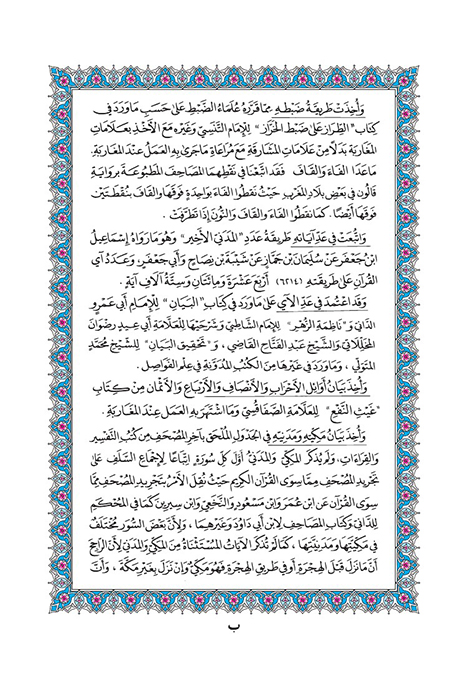 وَأُخِذَتْ طَرِيقَةُ ضَبْطِهِ مِمَّا قَرَّرَهُ عُلَمَاءُ الضَّبْطِ عَلَى حَسَبِ مَا وَرَدَ فِي
كِتَابِ "الطِّرَازِ عَلَى ضَبْطِ الْخَرَّازِ" لِلْإِمَامِ التَّنَسِيِّ وَغَيْرِهِ مَعَ الْأَخْذِ بِعَلَامَاتِ
الْمَغَارِبَةِ بَدَلًا مِنْ عَلَامَاتِ الْمَشَارِقَةِ مَعَ مُرَاعَاةِ مَا جَرَى بِهِ الْعَمَلُ عِنْدَ الْمَغَارِبَةِ.
مَا عَدَا الْفَاءَ وَالْقَافَ فَقَدِ اتَّبَعْنَا فِي نَقْطِهِمَا الْمَصَاحِفَ الْمَطْبُوعَةَ بِرِوَايَةِ
قَالُونَ فِي بَعْضِ بِلَادِ الْمَغْرِبِ حَيْثُ نَقَطُوا الْفَاءَ بِوَاحِدَةٍ فَوْقَهَا وَالْقَافَ بِنُقْطَتَيْنِ
فَوْقَهَا أَيْضًا. كَمَا نَقَطُوا الْفَاءَ وَالْقَافَ وَالنُّونَ إِذَا تَطَرَّفَتْ.
وَاتُّبِعَتْ فِي عَدِّ آيَاتِهِ طَرِيقَةُ عَدَدِ "الْمَدَنِيِّ الْأَخِيرِ" وَهُوَ مَا رَوَاهُ إِسْمَاعِيلُ
ابْنُ جَعْفَرٍ عَنْ سُلَيْمَانَ بْنِ جَمَّازٍ عَنْ شَيْبَةَ بْنِ نِصَاحٍ وَأَبِي جَعْفَرٍ، وَعَدَدُ آيِ
الْقُرْآنِ عَلَى طَرِيقَتِهِ (٦٢١٤) أَرْبَعَ عَشْرَةَ وَمِائَتَانِ وَسِتَّةُ آلَافِ آيَةٍ.
وَقَدِ اعْتُمِدَ فِي عَدِّ الْآيِ عَلَى مَا وَرَدَ فِي كِتَابِ "الْبَيَانِ" لِلْإِمَامِ أَبِي عَمْرٍو
الدَّانِيِّ وَ"نَاظِمَةِ الزُّهْرِ" لِلْإِمَامِ الشَّاطِبِيِّ وَشَرْحَيْهَا لِلْعَلَّامَةِ أَبِي عِيدٍ رِضْوَانَ
الْمُخَلِّلَاتِيِّ وَالشَّيْخِ عَبْدِ الْفَتَّاحِ الْقَاضِي، وَ"تَحْقِيقِ الْبَيَانِ" لِلشَّيْخِ مُحَمَّدٍ
الْمُتَوَلِّي، وَمَا وَرَدَ فِي غَيْرِهَا مِنَ الْكُتُبِ الْمُدَوَّنَةِ فِي عِلْمِ الْفَوَاصِلِ.
وَأُخِذَ بَيَانُ أَوَائِلِ الْأَحْزَابِ وَالْأَنْصَافِ وَالْأَرْبَاعِ وَالْأَثْمَانِ مِنْ كِتَابِ
"غَيْثِ النَّفْعِ" لِلْعَلَّامَةِ الصَّفَاقُسِيِّ وَمَا اشْتَهَرَ بِهِ الْعَمَلُ عِنْدَ الْمَغَارِبَةِ.
وَأُخِذَ بَيَانُ مَكِّيِّهِ وَمَدَنِيِّهِ فِي الْجَدْوَلِ الْمُلْحَقِ بِآخِرِ الْمُصْحَفِ مِنْ كُتُبِ التَّفْسِيرِ
وَالْقِرَاءَاتِ، وَلَمْ يُذْكَرِ الْمَكِّيُّ وَالْمَدَنِيُّ أَوَّلَ كُلِّ سُورَةٍ اتِّبَاعًا لِإِجْمَاعِ السَّلَفِ عَلَى
تَجْرِيدِ الْمُصْحَفِ مِمَّا سِوَى الْقُرْآنِ الْكَرِيمِ حَيْثُ نُقِلَ الْأَمْرُ بِتَجْرِيدِ الْمُصْحَفِ مِمَّا
سِوَى الْقُرْآنِ عَنِ ابْنِ عُمَرَ وَابْنِ مَسْعُودٍ وَالنَّخَعِيِّ وَابْنِ سِيرِينَ كَمَا فِي الْمُحْكَمِ
لِلدَّانِيِّ وَكِتَابِ الْمَصَاحِفِ لِابْنِ أَبِي دَاوُدَ وَغَيْرِهِمَا، وَلِأَنَّ بَعْضَ السُّوَرِ مُخْتَلَفٌ
فِي مَكِّيَّتِهَا وَمَدَنِيَّتِهَا، كَمَا لَمْ تُذْكَرِ الْآيَاتُ الْمُسْتَثْنَاةُ مِنَ الْمَكِّيِّ وَالْمَدَنِيِّ لِأَنَّ الرَّاجِحَ
أَنَّ مَا نَزَلَ قَبْلَ الْهِجْرَةِ أَوْ فِي طَرِيقِ الْهِجْرَةِ فَهُوَ مَكِّيٌّ وَإِنْ نَزَلَ بِغَيْرِ مَكَّةَ، وَأَنَّ
ب